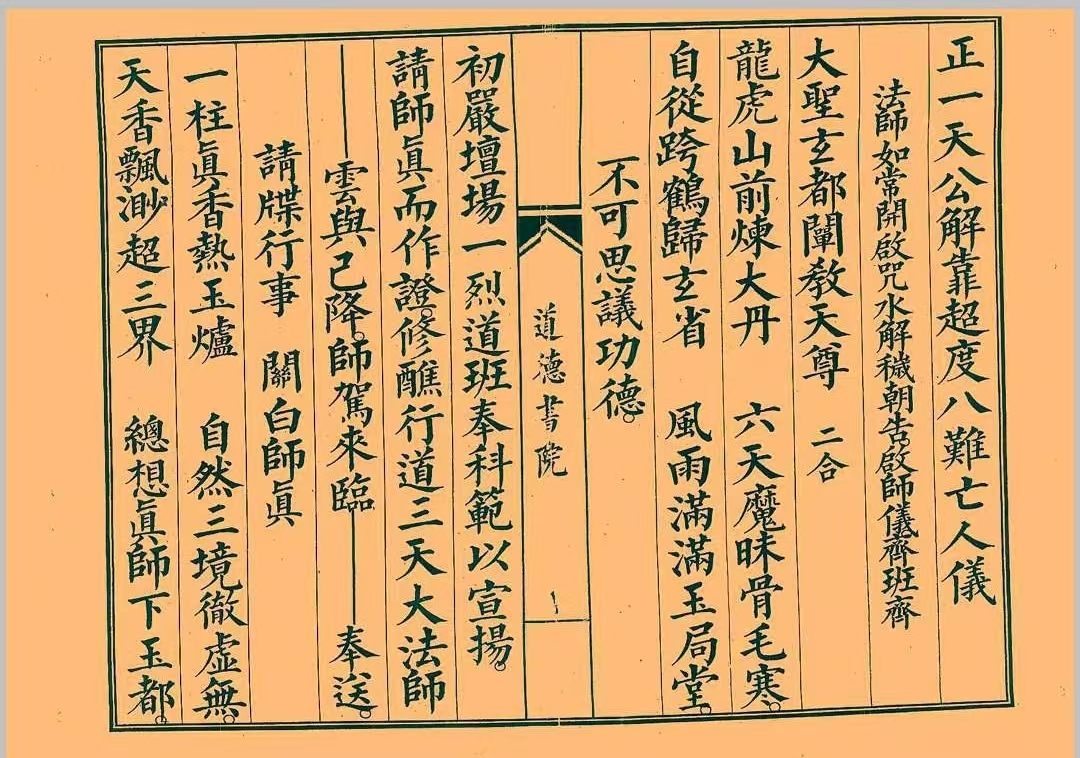 正一天公解靠超度八難亡人儀
法師如常開啟咒水解穢朝告啟師儀齊班齊
大聖玄都闡教天尊　二合
龍虎山前煉大丹　六天魔昧骨毛寒。
自從跨鶴歸玄省　風雨滿滿玉局堂。
不可思議功德。
道德書院
一
初嚴壇場一烈道班奉科範以宣揚。
請師眞而作證。修醮行道三天大法師
——雲與已降。師駕來臨——奉送。
請牒行事　關白師眞
一柱眞香熱玉爐　自然三境徹虛無。
天香飄渺超三界　總想眞師下玉都。